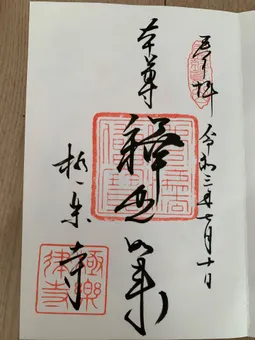 奉拝
令和三年七月十日
本尊
釋迦如来
極楽寺
極樂律寺